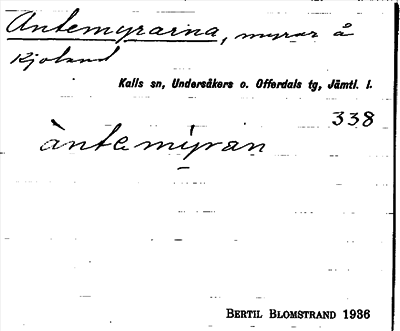 Antemyrarna, myrar å
Kjoland
Kalls sn, Undersåkers o. Offerdals tg, Jämtl. l.
338
àntemyran
BERTIL BLOMSTRAND 1936